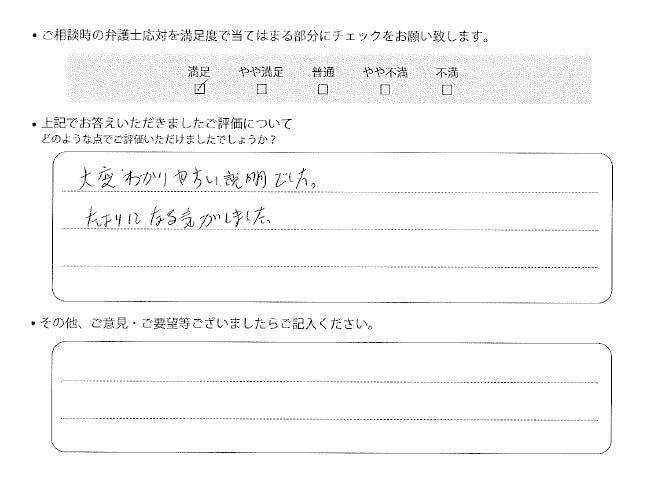 • ご相談時の弁護士応対を満足度で当てはまる部分にチェックをお願い致します。
満足 やや満足 普通 やや不満 不満
☑ □ □ □ □
• 上記でお答えいただきましたご評価について
どのような点でご評価いただけましたでしょうか？
大変わかりやすい説明でした。
たよりになる気がしました。
• その他、ご意見・ご要望等ございましたらご記入ください。